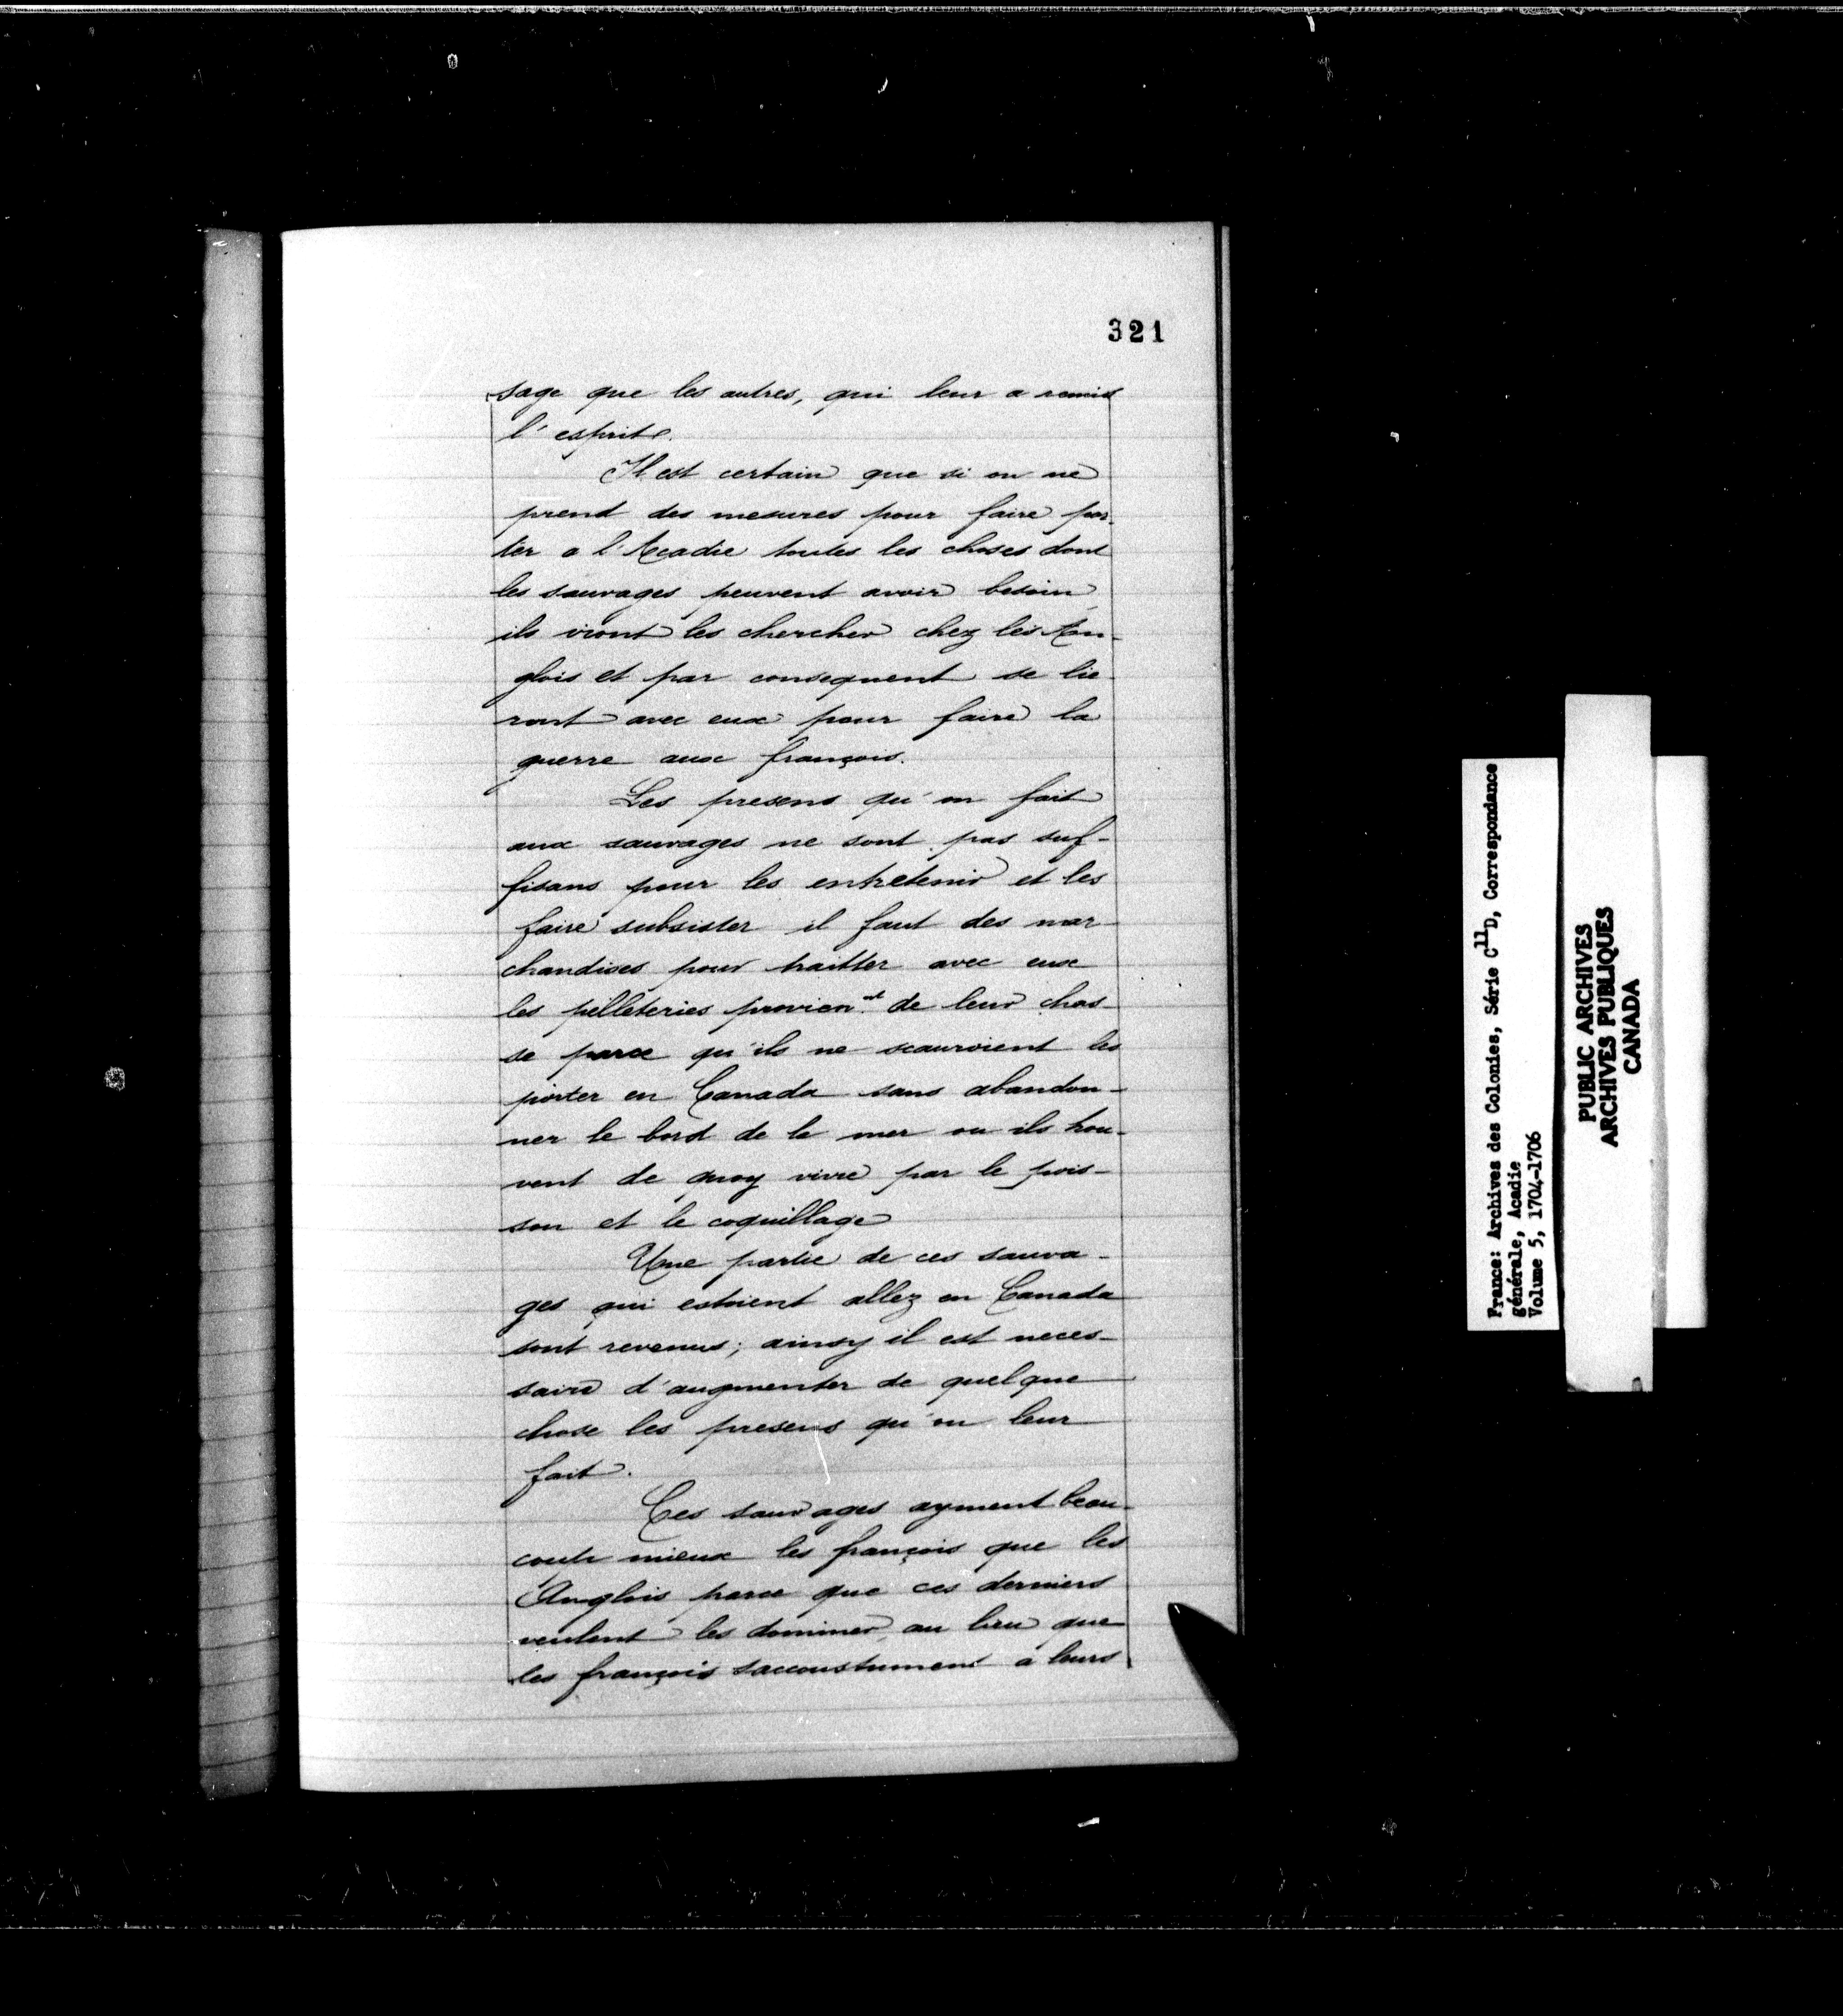 321
sage que les autres, qui leur a remis
l'esprit.
Il est certain que si on ne
prend des mesures pour faire por-
ter a l'Acadie toutes les choses dont
les sauvages peuvent avoir besoin
ils iront les chercher chez les An-
glois et par consequent se lie-
ront avec eux pour faire la
guerre aux françois.
Les presens qu'on fait
aux sauvages ne sont pas suf-
fisans pour les entretenir et les
faire subsister il faut des mar-
chandises pour traitter avec eux
les pelleteries provien.nt de leur chas-
se parce qu'ils ne scauroient les
porter en Canada sans abandon-
ner le bord de la mer ou ils trou-
vent de quoy vivre par le pois-
son et le coquillage
Une partie de ces sauva-
ges qui estoient allez en Canada
sont revenus; ainsy il est neces-
saire d'augmenter de quelque
chose les presens qu'on leur
fait.
Ces sauvages ayment beau-
coup mieux les françois que les
Anglois parce que ces derniers
veulent les dominer, au lieu que
les françois saccoustument a leurs
France: Archives des Colonies, Série C11D, Correspondance
générale, Acadie
Volume 5, 1704-1706
PUBLIC ARCHIVES
ARCHIVES PUBLIQUES
CANADA